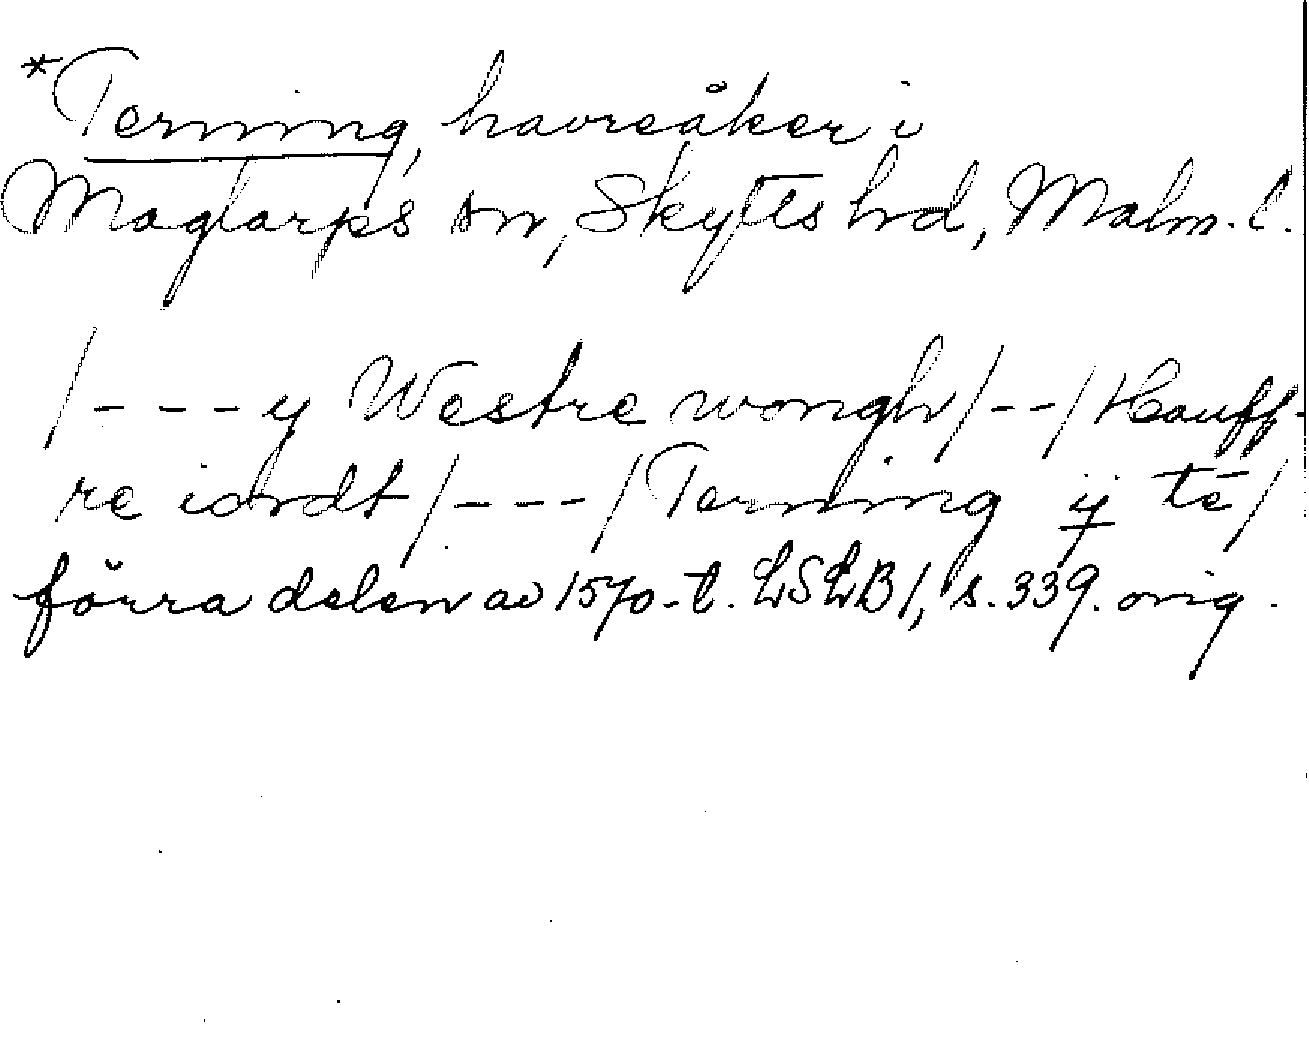 *Terning, havreåker i
Maglarps sn, Skytts hrd, Malm. l.
/---y Westre wongh/--/Hauff-
re iordt/---/Terning ij te/
förra delen av 1570-t. LSLB 1, s. 339. orig.